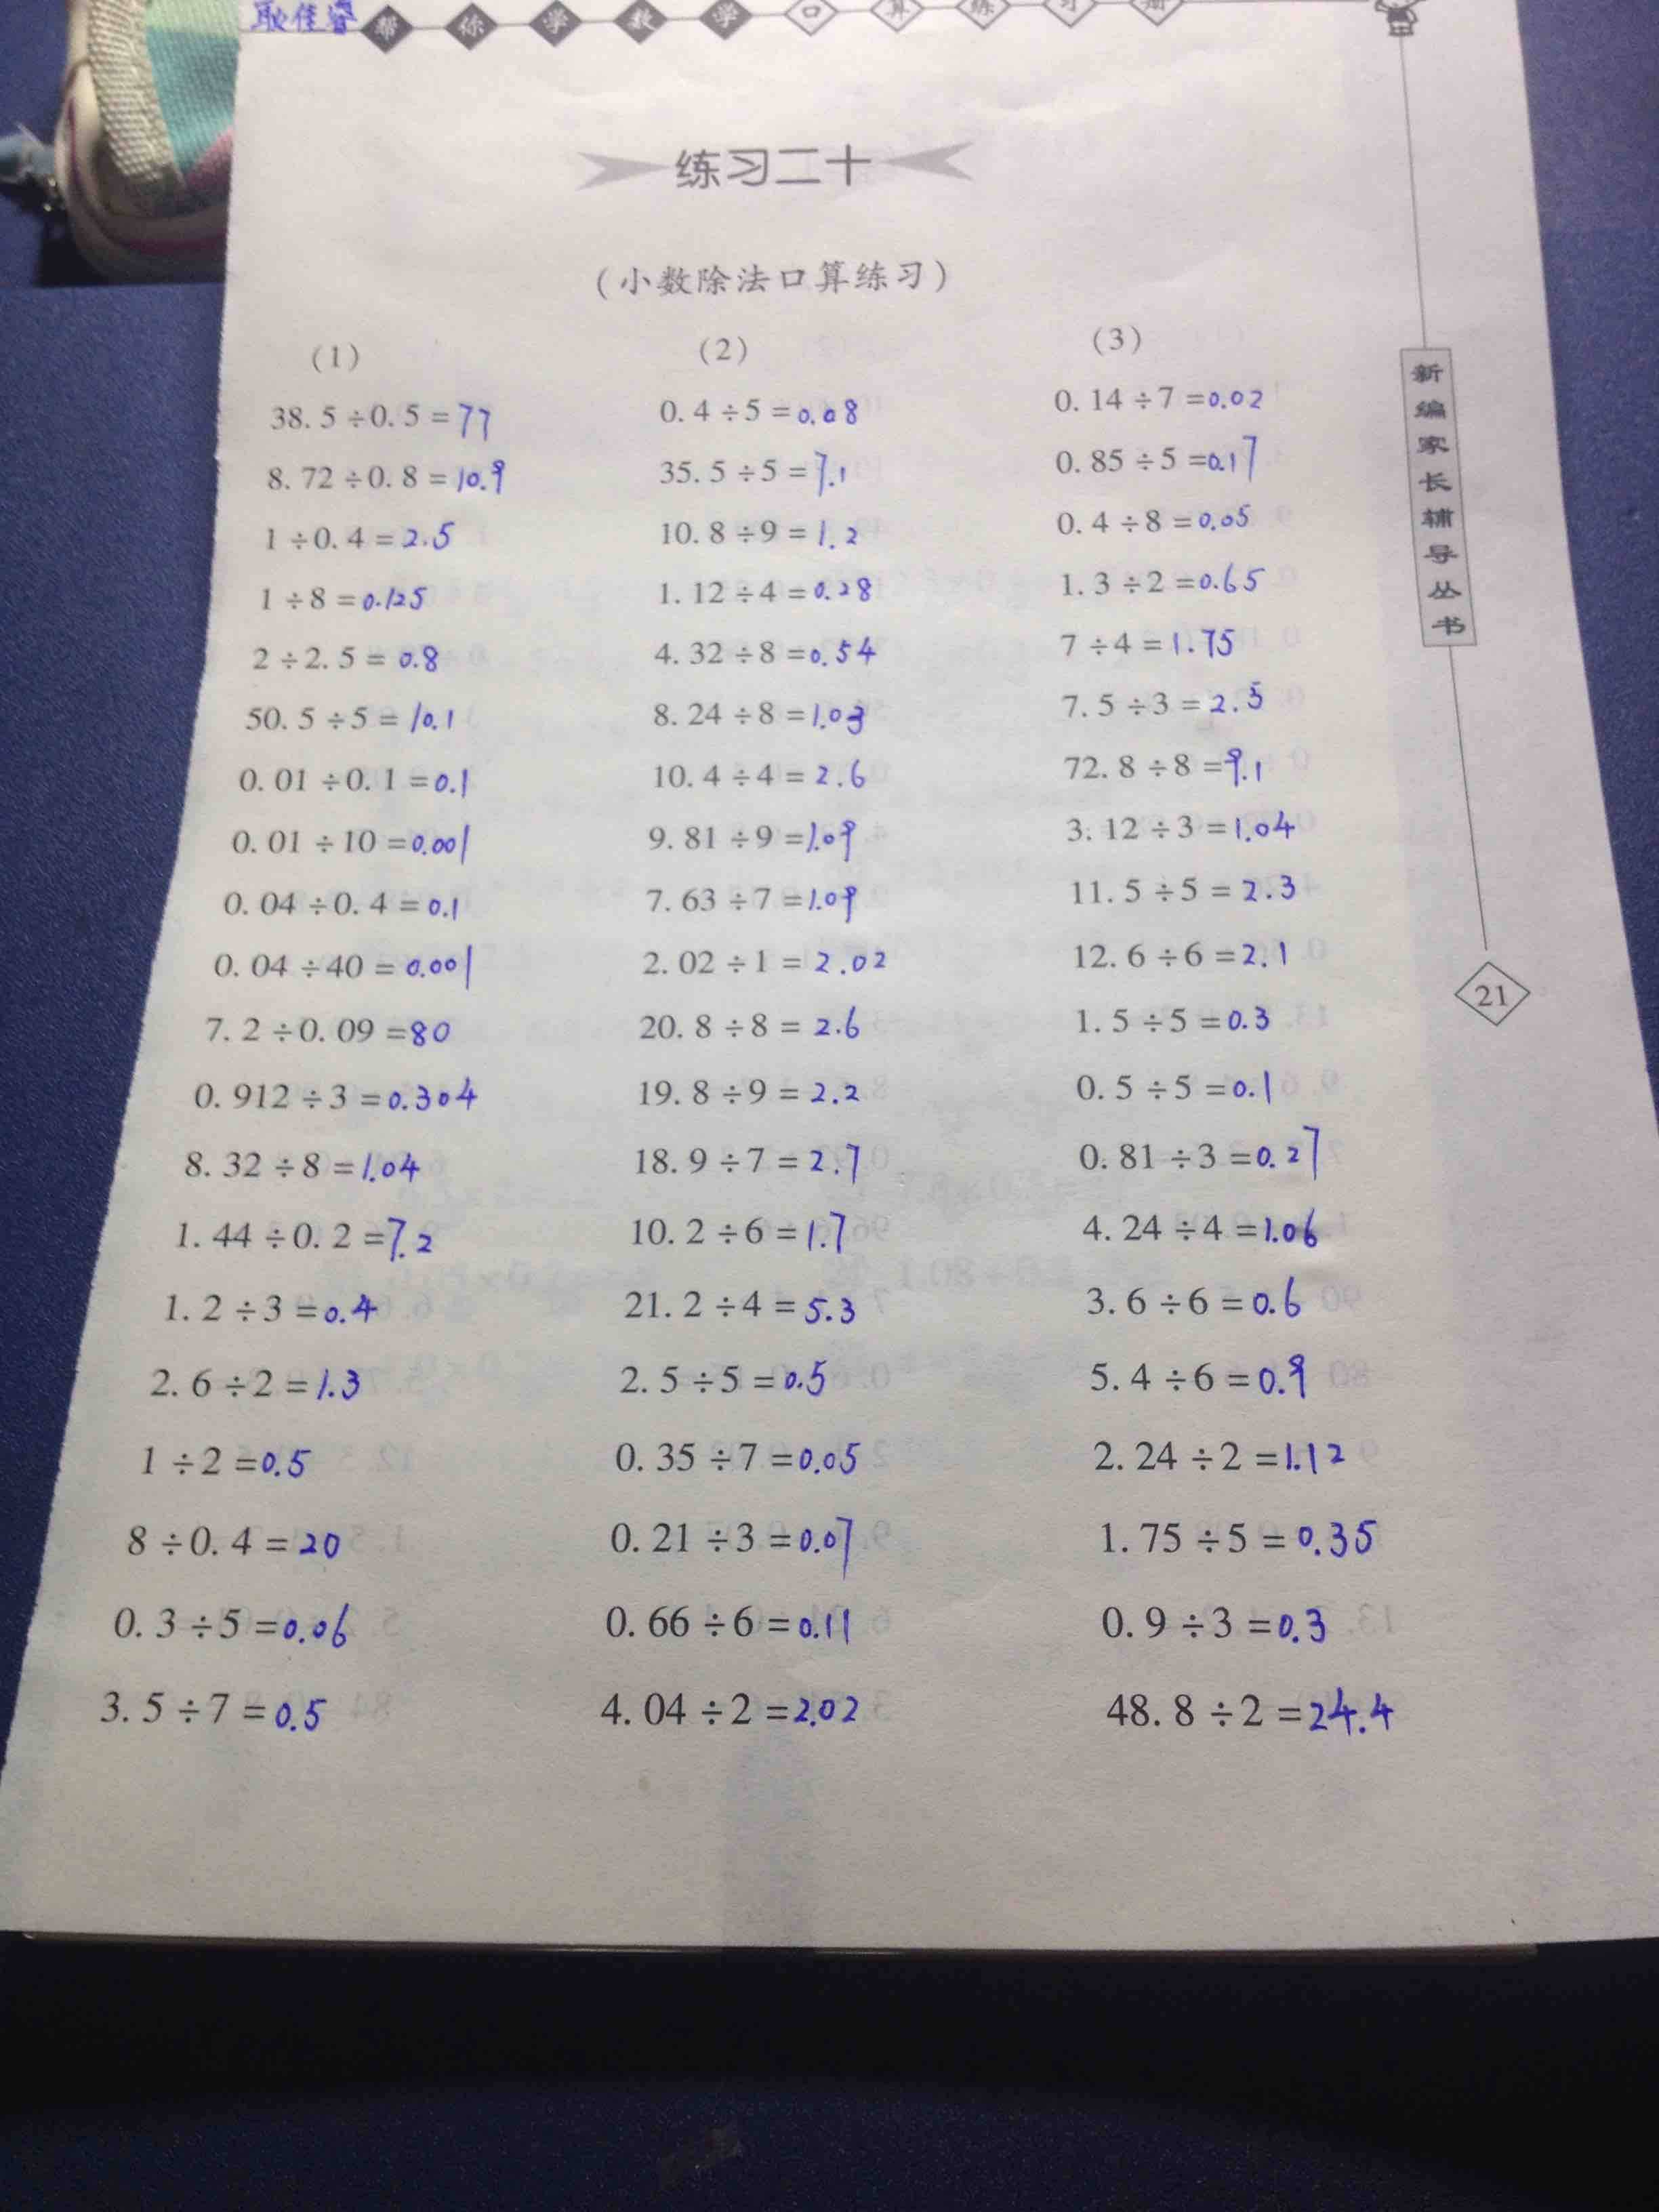 耿佳睿
帮你学数学口算练习册
练习二十
(小数除法口算练习)
(1)
38.5÷0.5=77
8.72÷0.8=10.9
1÷0.4=2.5
1÷8=0.125
2÷2.5=0.8
50.5÷5=10.1
0.01÷0.1=0.1
0.01÷10=0.001
0.04÷0.4=0.1
0.04÷40=0.001
7.2÷0.09=80
0.912÷3=0.304
8.32÷8=1.04
1.44÷0.2=7.2
1.2÷3=0.4
2.6÷2=1.3
1÷2=0.5
8÷0.4=20
0.3÷5=0.06
3.5÷7=0.5
(2)
0.4÷5=0.08
35.5÷5=7.1
10.8÷9=1.2
1.12÷4=0.28
4.32÷8=0.54
8.24÷8=1.03
10.4÷4=2.6
9.81÷9=1.09
7.63÷7=1.09
2.02÷1=2.02
20.8÷8=2.6
19.8÷9=2.2
18.9÷7=2.7
10.2÷6=1.7
21.2÷4=5.3
2.5÷5=0.5
0.35÷7=0.05
0.21÷3=0.07
0.66÷6=0.11
4.04÷2=2.02
(3)
0.14÷7=0.02
0.85÷5=0.17
0.4÷8=0.05
1.3÷2=0.65
7÷4=1.75
7.5÷3=2.5
72.8÷8=9.1
3.12÷3=1.04
11.5÷5=2.3
12.6÷6=2.1
1.5÷5=0.3
0.5÷5=0.1
0.81÷3=0.27
4.24÷4=1.06
3.6÷6=0.6
5.4÷6=0.9
2.24÷2=1.12
1.75÷5=0.35
0.9÷3=0.3
48.8÷2=24.4
新编家长辅导丛书
21